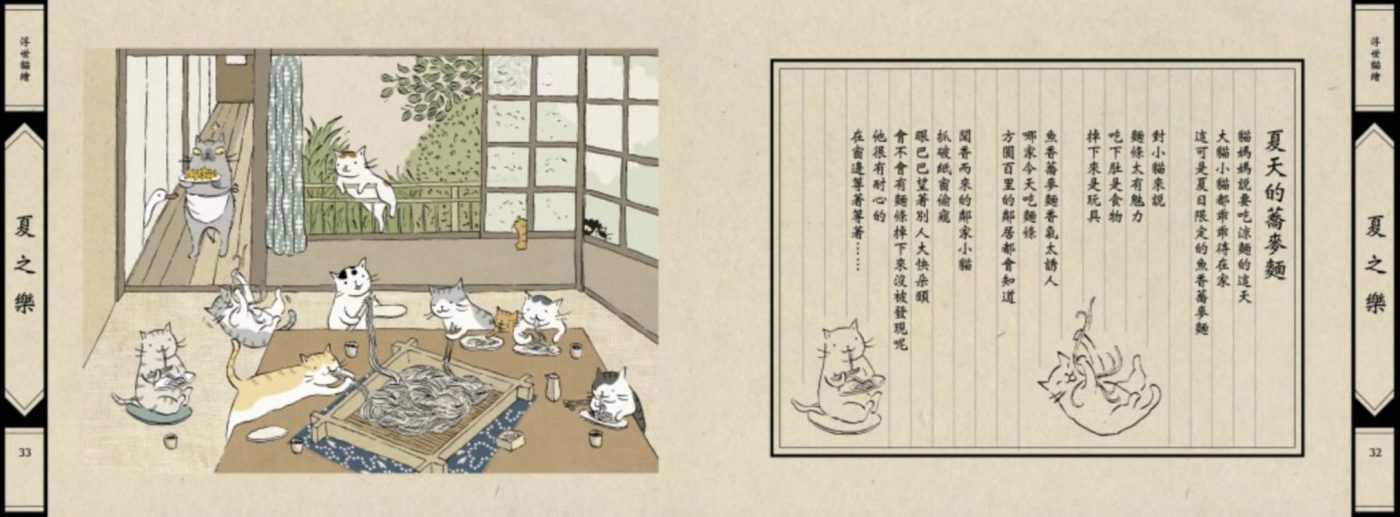 浮世貓繪
夏之樂
32
夏天的蕎麥麵
貓媽媽說要吃涼麵的這天
大貓小貓都乖乖待在家
這可是夏日限定的魚香蕎麥麵
對小貓來說
麵條太有魅力
吃下肚是食物
掉下來是玩具
魚香蕎麥麵香氣太誘人
哪家今天吃麵條
方圓百里的鄰居都會知道
聞香而來的鄰家小貓
抓破紙窗偷窺
眼巴巴望著別人大快朵頤
會不會有麵條掉下來沒被發現呢
他很有耐心的
在窗邊等著等著……
浮世貓繪
夏之樂
33